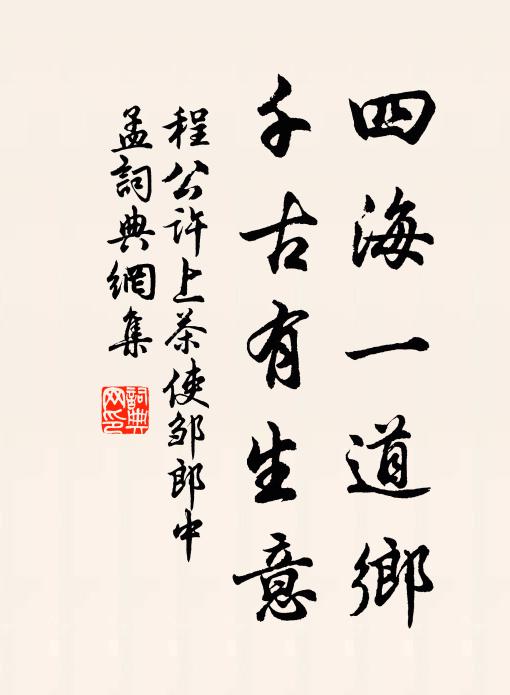 四海一道鄉
千古有生意
程公許上茶使邹郎中
孟詞典網集
詞典网印